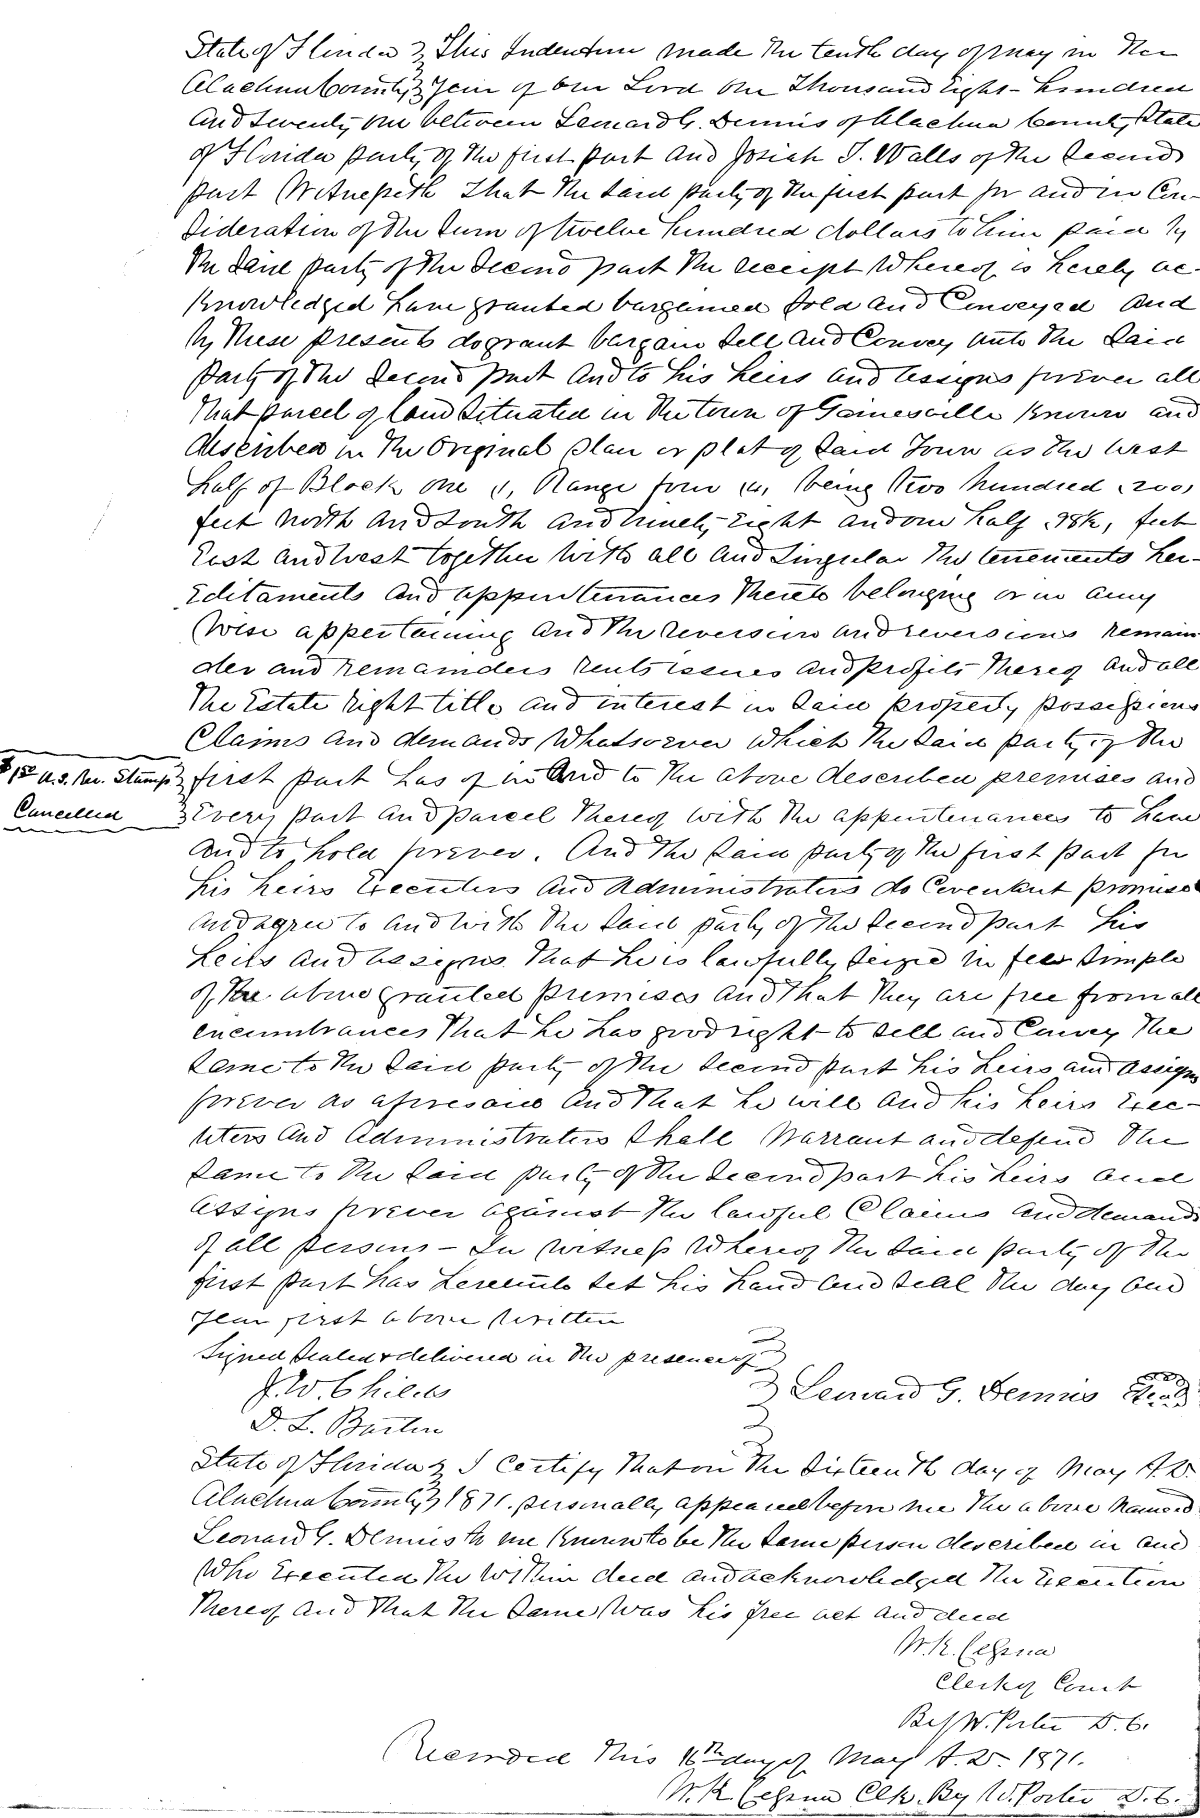 State of Florida } This Indenture made the tenth day of May in the
Alachua County } year of our Lord one thousand Eight-hundred
and seventy one between Leonard G. Dennis of Alachua County State
of Florida party of the first part and Josiah T. Walls of the second
part Witnesseth that the said party of the first part for and in Con-
sideration of the sum of twelve hundred dollars to him paid by
the said party of the second part the receipt whereof is hereby ac-
knowledged have granted bargained sold and Conveyed and
by these presents do grant bargain sell and Convey unto the said
party of the second part and to his heirs and assigns forever all
that parcel of land situated in the town of Gainesville known and
described in the Original plan or plat of said Town as the west
half of Block one (1) Range four (4) being two hundred (200)
feet north and south and ninety eight and one half (98½) feet
East and west together with all and singular the tenements her-
editaments and appurtenances thereto belonging or in any
wise appertaining and the reversion and reversions remain
der and remainders rents issues and profits thereof and all
the Estate right title and interest in said property possessions
Claims and demands whatsoever which the said party of the
$1.50 U.S. Rev. Stamp } first part has of in and to the above described premises and
Cancelled } Every part and parcel thereof with the appurtenances to have
and to hold forever. And the said party of the first part for
his heirs Executers and administraters do Covenant promise
and agree to and with the said party of the second part his
heirs and assigns that he is lawfully seized in fee simple
of the above granted premises and that they are free from all
encumbrances that he has good right to sell and Convey the
same to the said party of the second part his heirs and assigns
forever as aforesaid and that he will and his heirs Exec-
uters and administraters shall warrant and defend the
same to the said party of the second part his heirs and
assigns forever against the lawful Claims and demands
of all persons - In witness whereof the said party of the
first part has hereunto set his hand and seal the day and
year first above written
Signed sealed & delivered in the presence of
J. W. Childs } Leonard G. Dennis Seal
D. L. Barton
State of Florida } I certify that on the sixteenth day of May A.D.
Alachua County } 1871. personally appeared before me the above named
Leonard G. Dennis to me known to be the same person described in and
who Executed the within deed and acknowledged the Execution
thereof and that the same was his free act and deed
W. K. Cessna
Clerk of Court
By W. Porter D. C.
Recorded this 16th day of May A.D. 1871.
W. K. Cessna Clk. By W. Porter D. C.